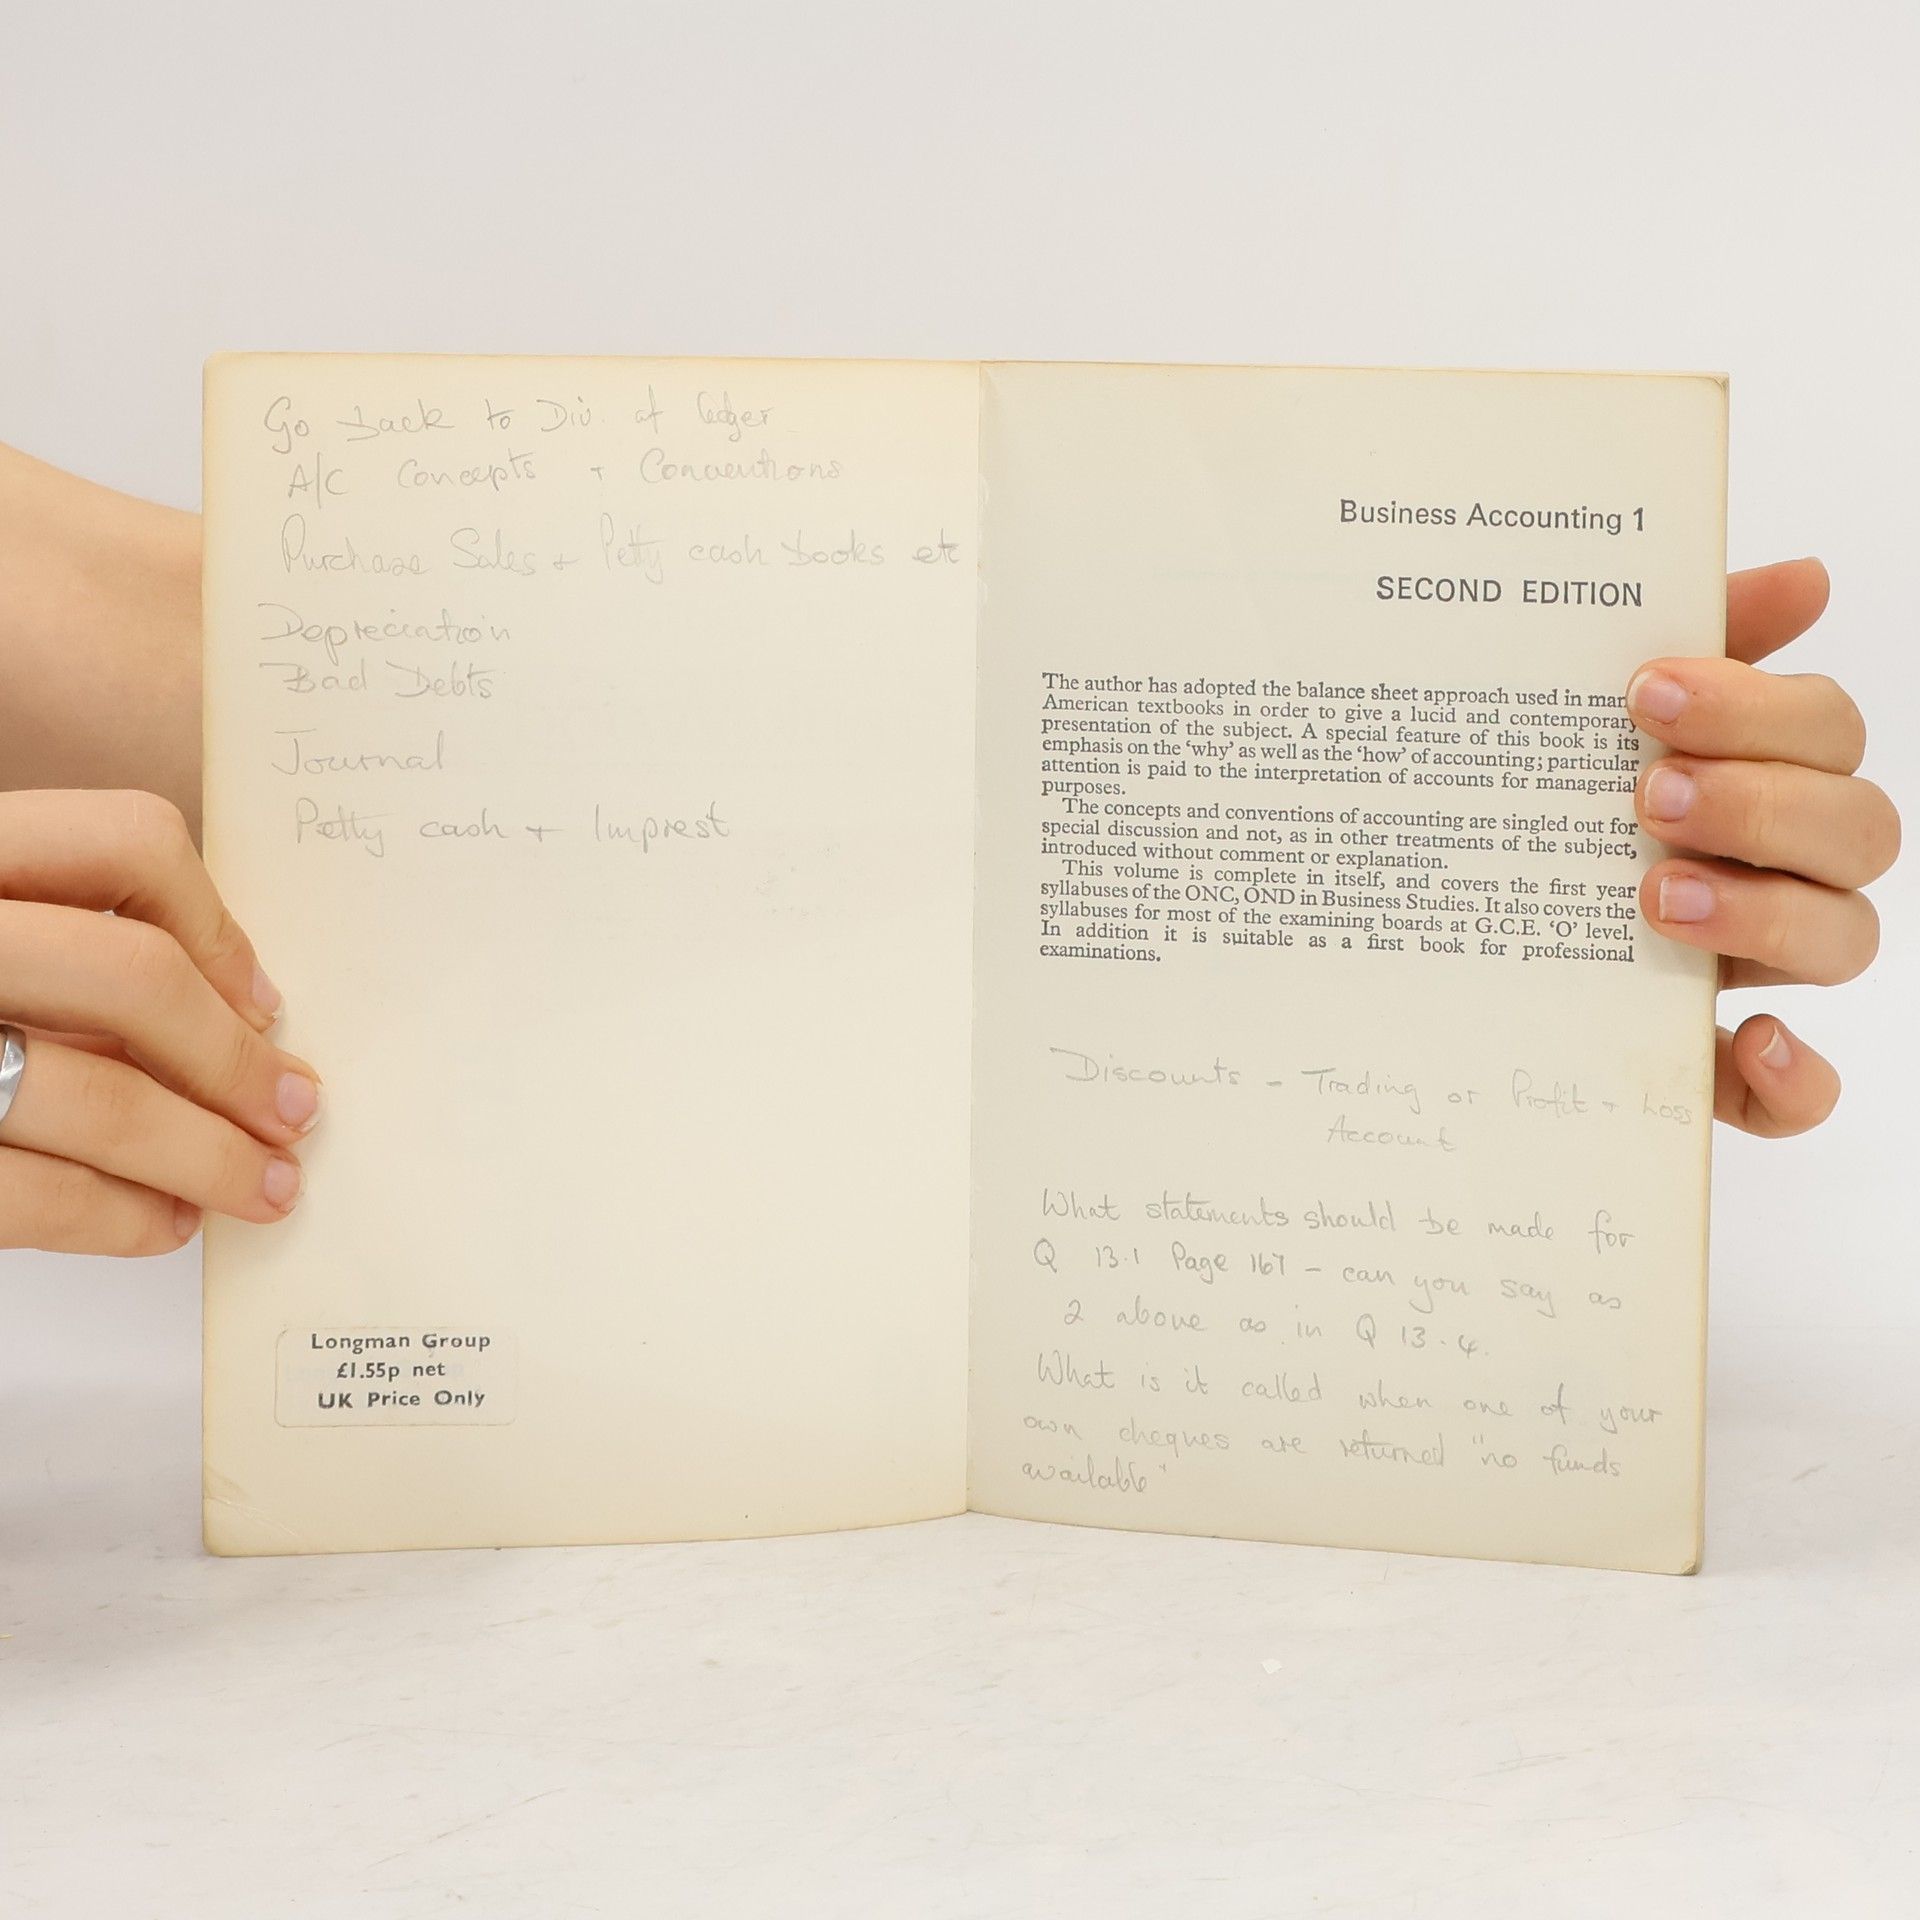 Go back to Div. of ledger
A/C Concepts + Conventions
Purchase Sales + Petty cash books etc
Depreciation
Bad Debts
Journal
Petty cash + Imprest
Longman Group
£1.55p net
UK Price Only
Business Accounting 1
SECOND EDITION
The author has adopted the balance sheet approach used in
American textbooks in order to give a lucid and contemporary
presentation of the subject. A special feature of this book is its
emphasis on the ‘why’ as well as the ‘how’ of accounting; particular
attention is paid to the interpretation of accounts for managerial
purposes.
The concepts and conventions of accounting are singled out for
special discussion and not, as in other treatments of the subject,
introduced without comment or explanation.
This volume is complete in itself, and covers the first year
syllabuses of the ONC, OND in Business Studies. It also covers the
syllabuses for most of the examining boards at G.C.E. ‘O’ level.
In addition it is suitable as a first book for professional
examinations.
Discounts - Trading or Profit + Loss
Account
What statements should be made for
Q 13.1 Page 167 - can you say as
2 above as in Q 13.4.
What is it called when one of your
own cheques are returned "no funds
available"